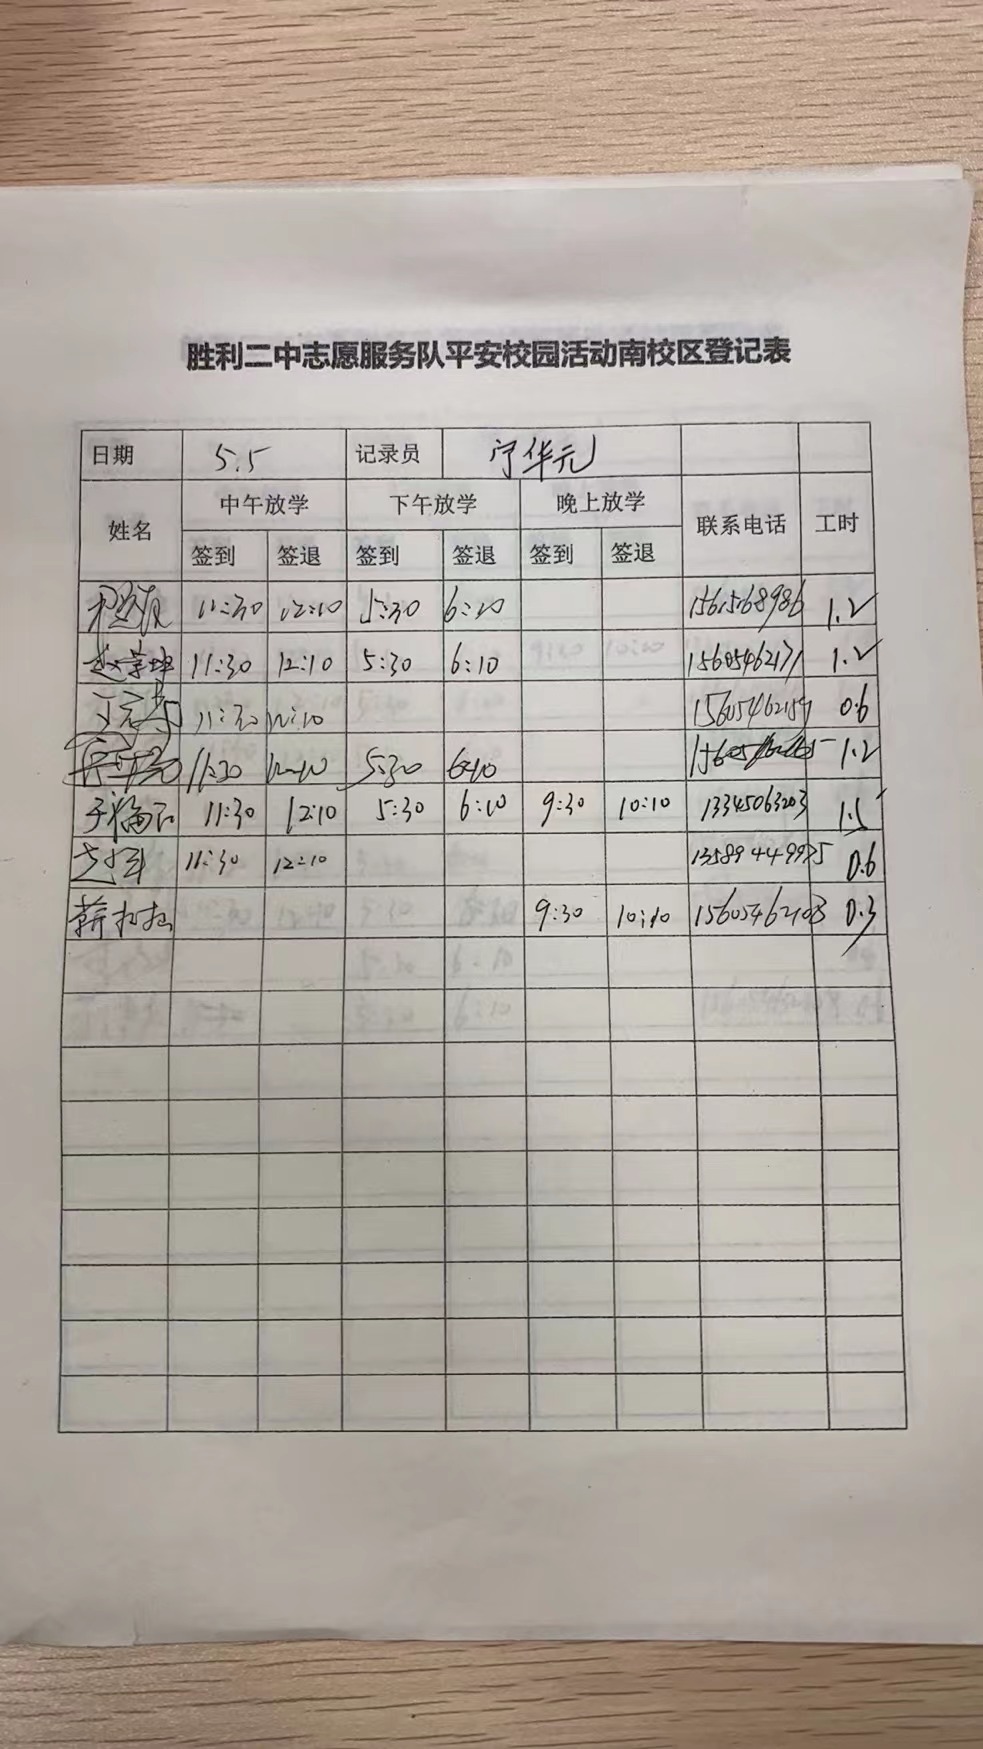 胜利二中志愿服务队平安校园活动南校区登记表
日期 5.5 记录员 宁华元
姓名 中午放学 下午放学 晚上放学 联系电话 工时
签到 签退 签到 签退 签到 签退
11:30 12:10 5:30 6:10 15615168986 1.2
11:30 12:10 5:30 6:10 15605462171 1.2
11:30 12:10 0.6
11:30 12:10 5:30 6:10 1.2
于福石 11:30 12:10 5:30 6:10 9:30 10:10 13345063203 1.5
11:30 12:10 13589449975 0.6
9:30 10:10 0.3